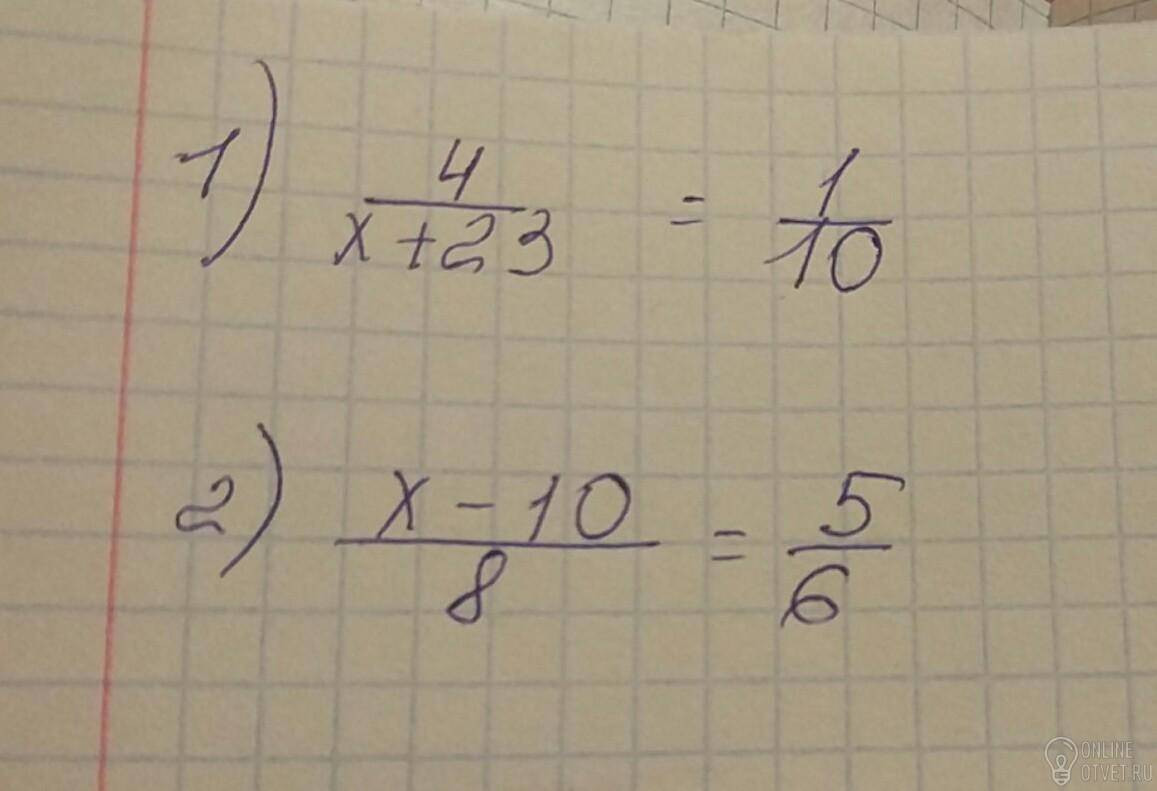 1) 4/(x+23) = 1/10
2) (x-10)/8 = 5/6
ONLINE
OTVET.RU